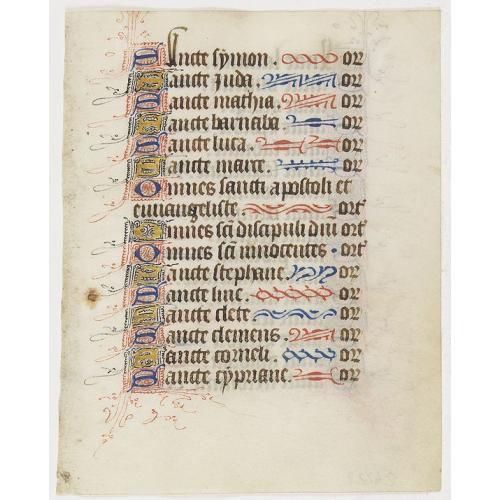 Sancte symon. or
Sancte Juda. or
Sancte mathia. or
Sancte barnaba. or
Sancte luca. or
Sancte marce. or
Omnes sancti apostoli et
euuangeliste. ort
Omnes sci discipuli dni ort
Omnes sci innocentes. ort
Sancte stephane. or
Sancte line. or
Sancte clete. or
Sancte clemens. or
Sancte corneli. or
Sancte cypriane. or